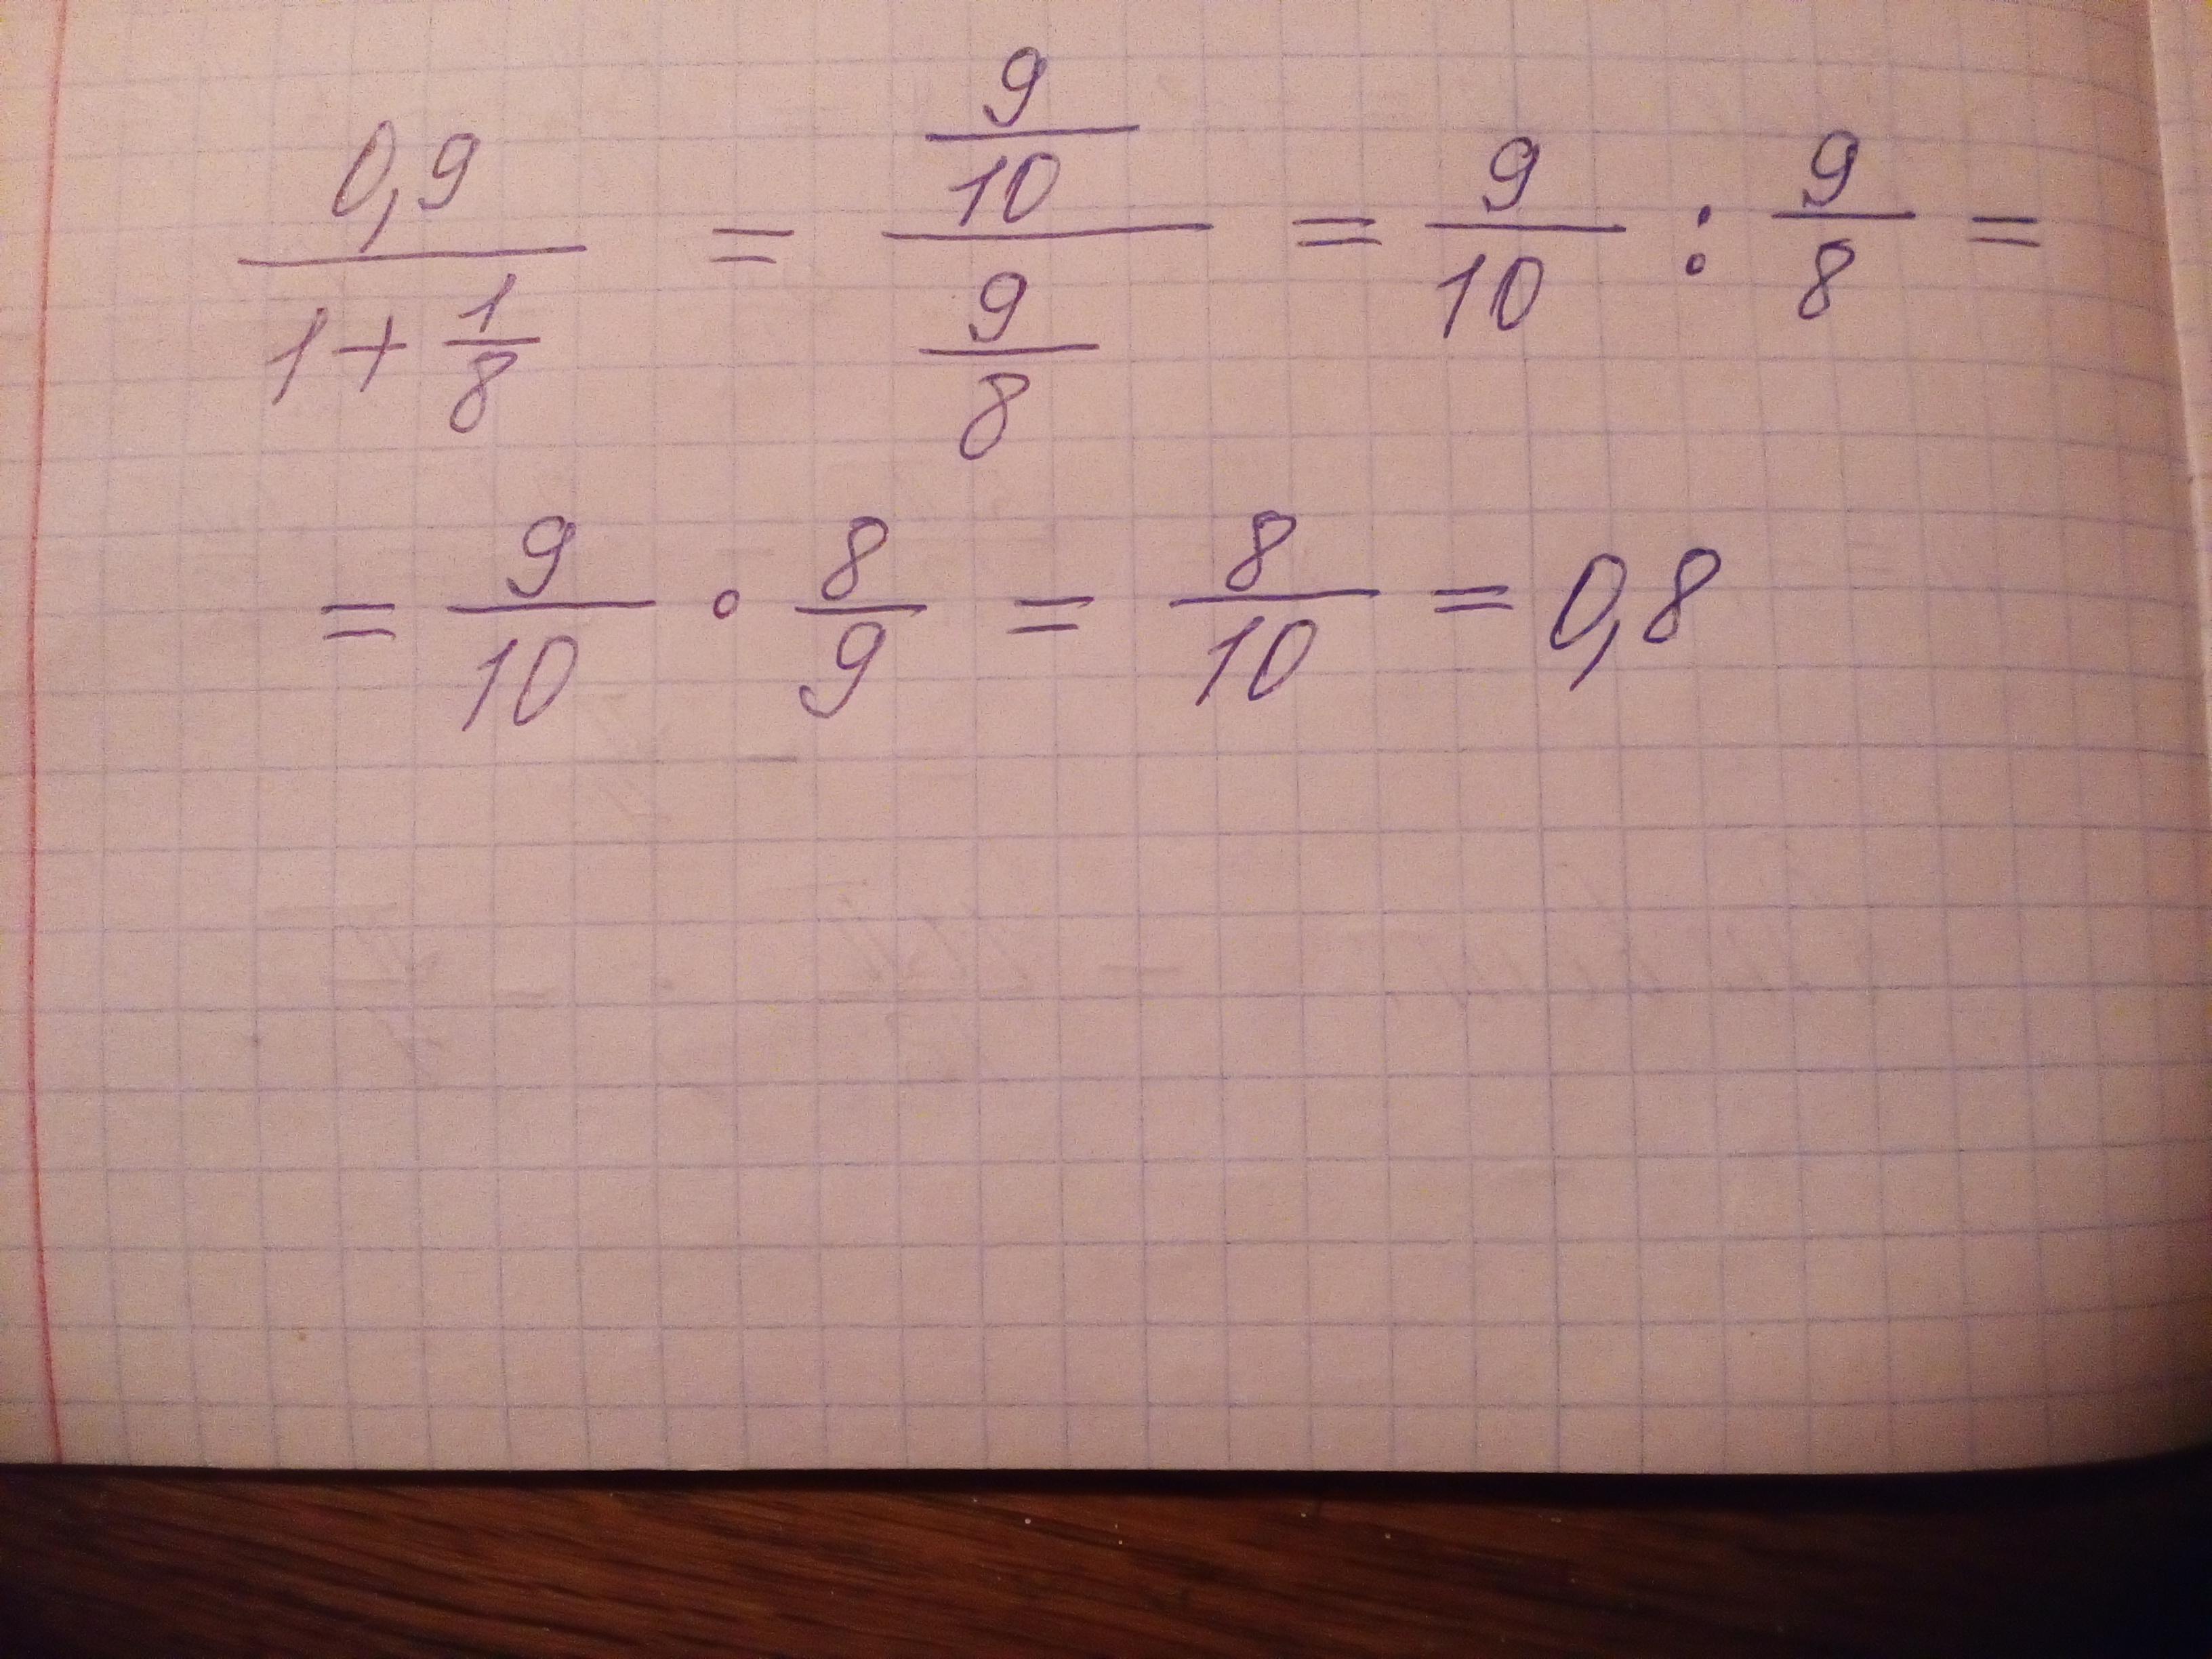 0,9/(1+1/8) = (9/10)/(9/8) = 9/10 : 9/8 =
= 9/10 · 8/9 = 8/10 = 0,8